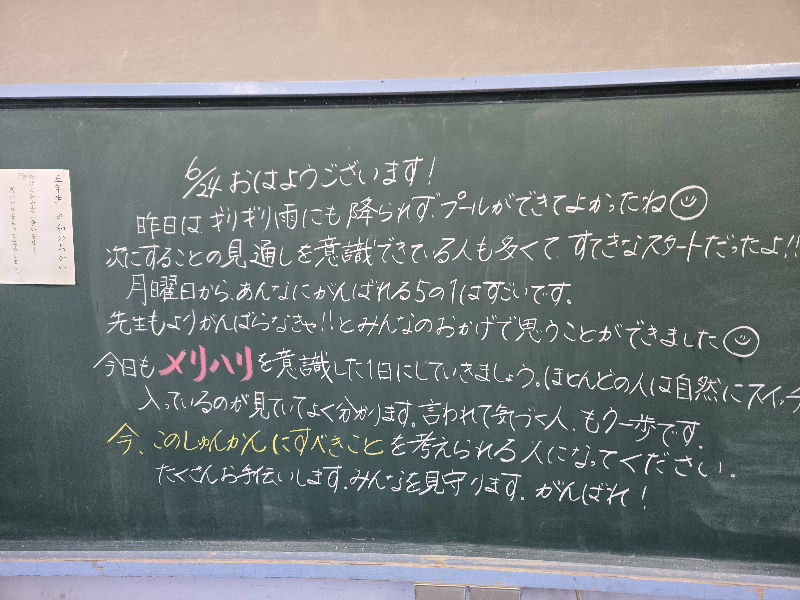 6/24 おはようございます!
昨日は、ギリギリ雨にも降られず、プールができてよかったね
次にすることの見通しを意識できている人も多くて、すてきなスタートだったよ!!
月曜日から、あんなにがんばれる5の1はすごいです。
先生もよりがんばらなきゃ!!とみんなのおかげで思うことができました
今日もメリハリを意識した1日にしていきましょう。ほとんどの人は自然にスイッチ
入っているのが見ていてよく分かります。言われて気づく人、もう一歩です。
今、このしゅんかんにすべきことを考えられる人になってください。
たくさんお手伝いします。みんなを見守ります。がんばれ!
五年生 平和のちかい